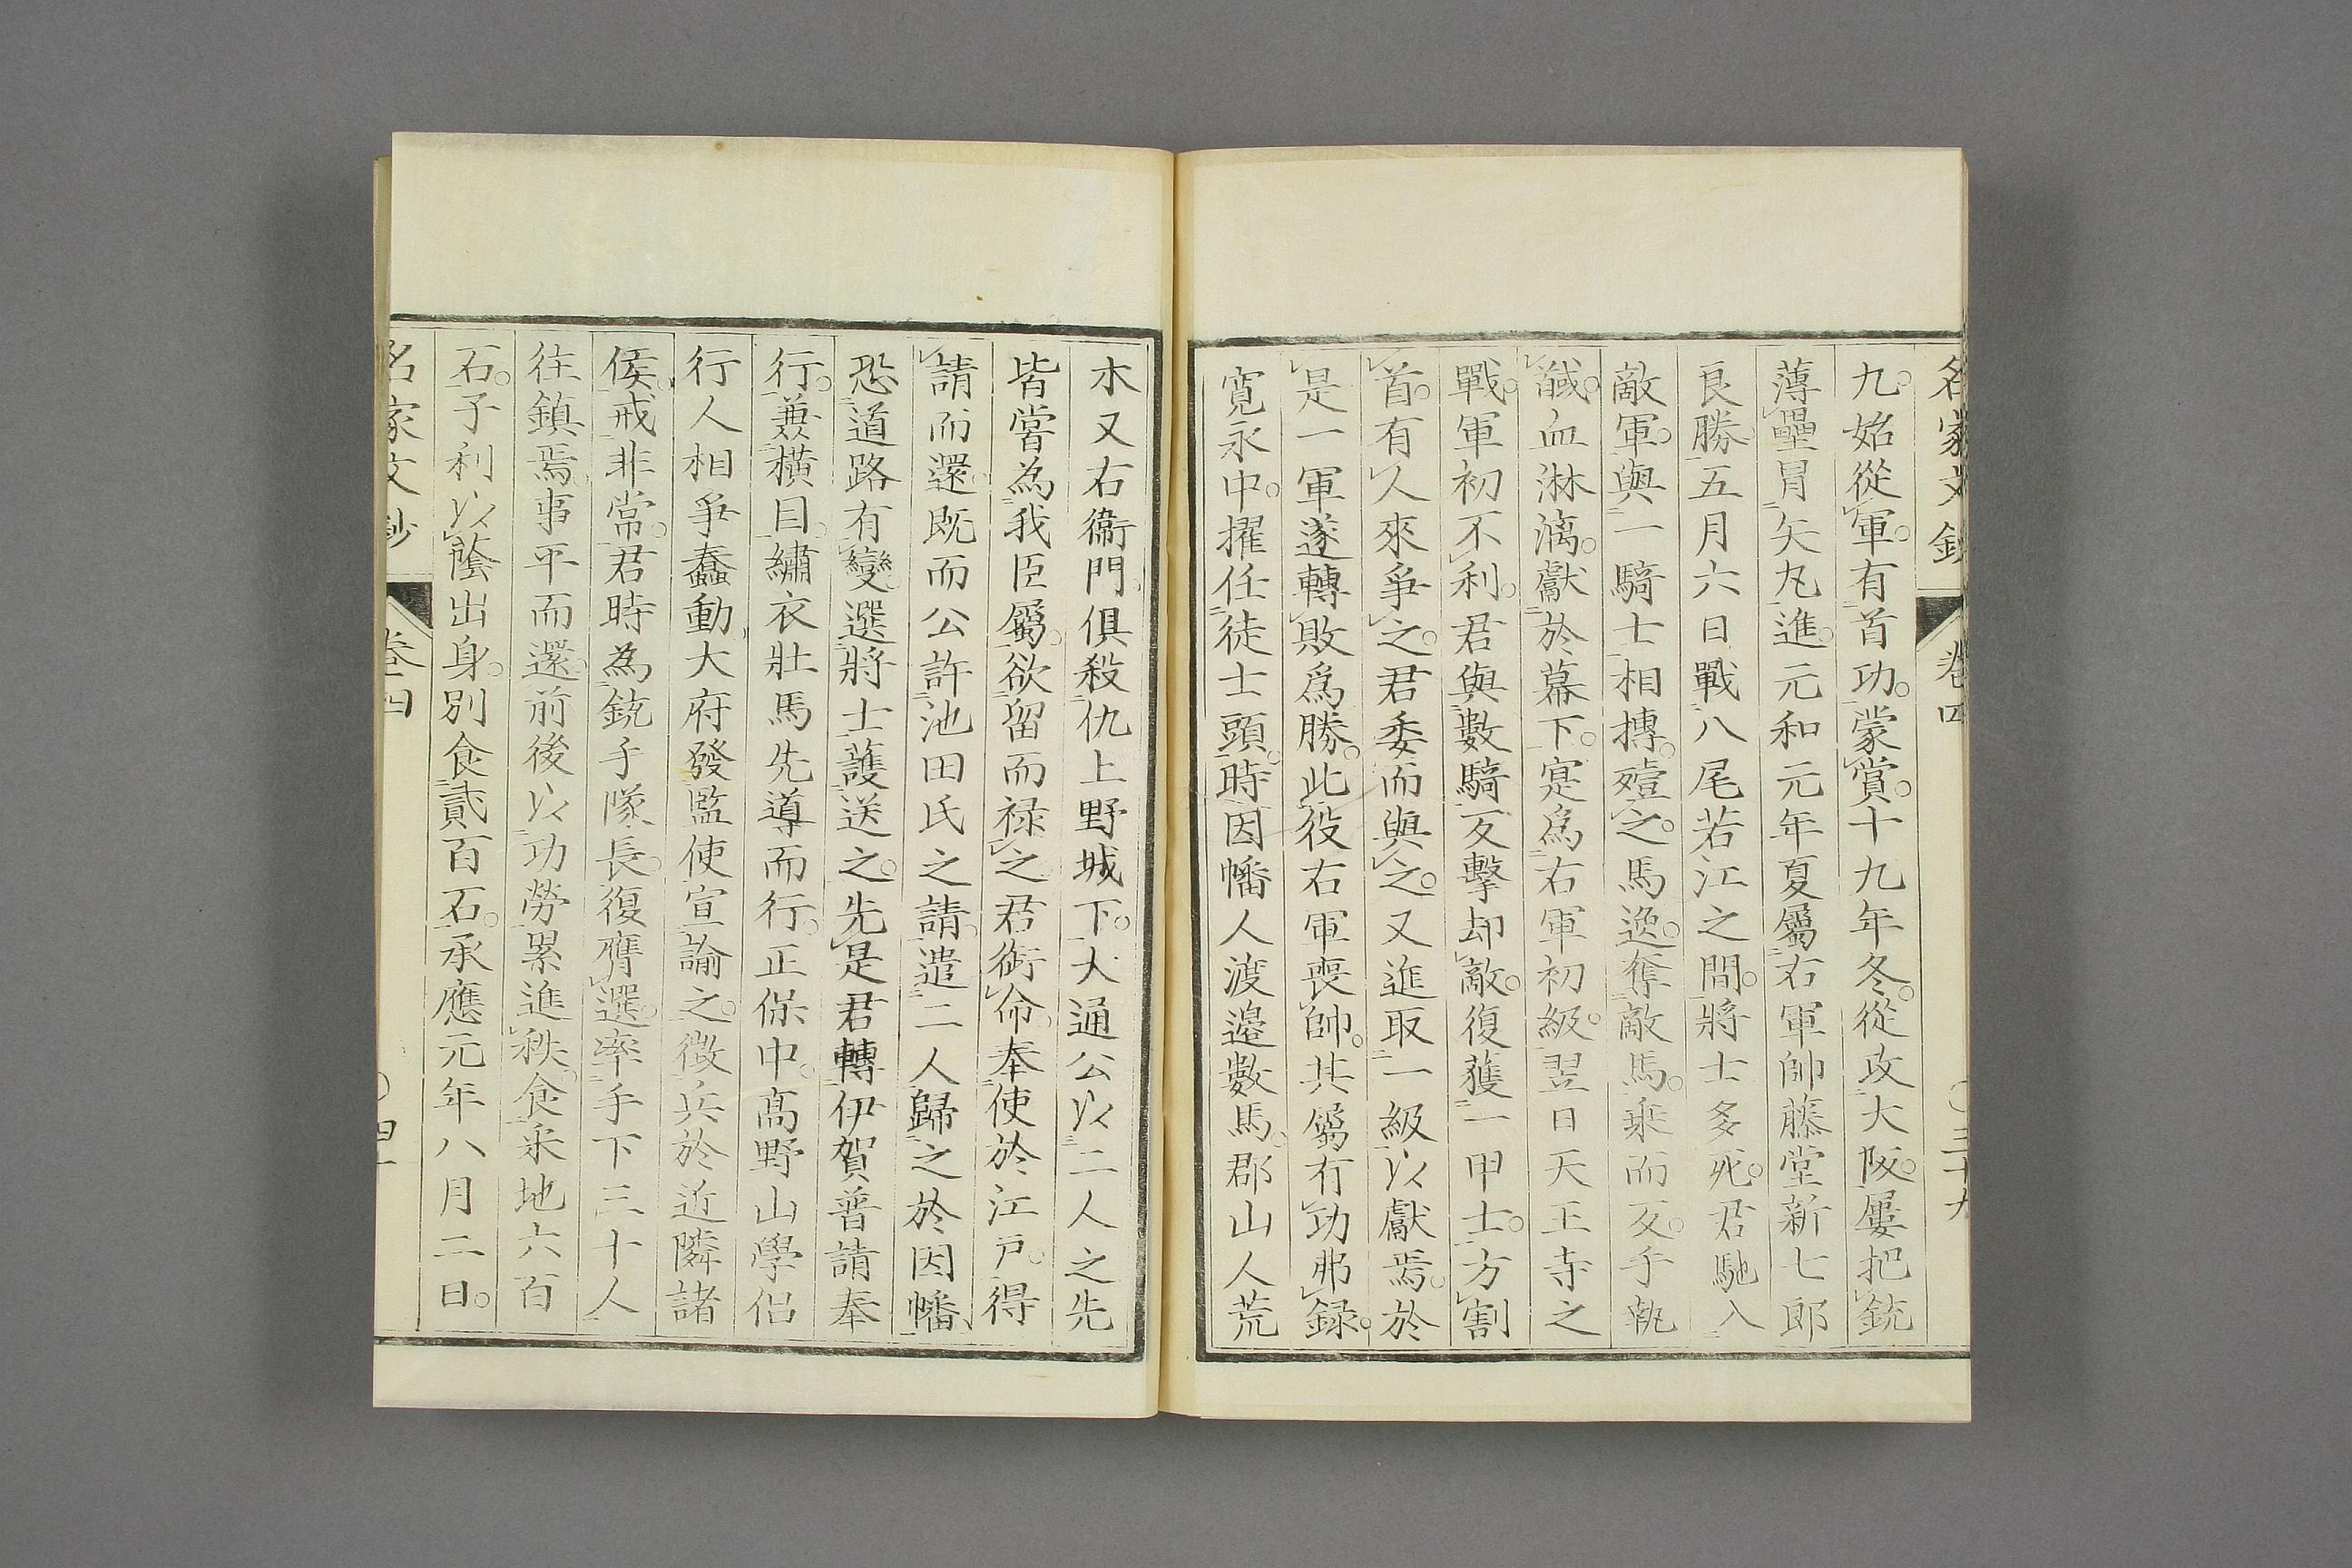 名家文鈔 卷四 〇三十九
九。始從軍。有首功。蒙賞。十九年冬。從攻大阪。屢把銃
薄壘冒矢丸進。元和元年夏屬右軍帥藤堂新七郎
良勝。五月六日戰八尾若江之間。將士多死。君馳入
敵軍。與一騎士相搏。殪之。馬逸。奪敵馬。乘而反。手執
馘。血淋漓。獻於幕下。寔爲右軍初級。翌日天王寺之
戰。軍初不利。君與數騎反擊却敵。復獲一甲士。方割
首。有人來爭之。君委而與之。又進取一級以獻焉。於
是一軍遂轉敗爲勝。此役右軍喪帥。其屬有功弗錄。
寬永中。擢任徒士頭。時因幡人渡邊數馬。郡山人荒
木又右衞門。俱殺仇上野城下。大通公以二人之先
皆嘗為我臣屬。欲留而祿之。君銜命。奉使於江戶。得
請而還。既而公許池田氏之請。遣二人歸之於因幡。
恐道路有變。選將士護送之。先是君轉伊賀普請奉
行。兼橫目。繡衣壯馬先導而行。正保中。高野山學侶
行人相爭蠢動。大府發監使宣諭之。徵兵於近隣諸
侯。戒非常。君時為銃手隊長。復膺選。率手下三十人
往鎮焉。事平而還。前後以功勞累進秩。食采地六百
石。子利以蔭出身。別食貳百石。承應元年八月二日。
名家文鈔 卷四 〇四十